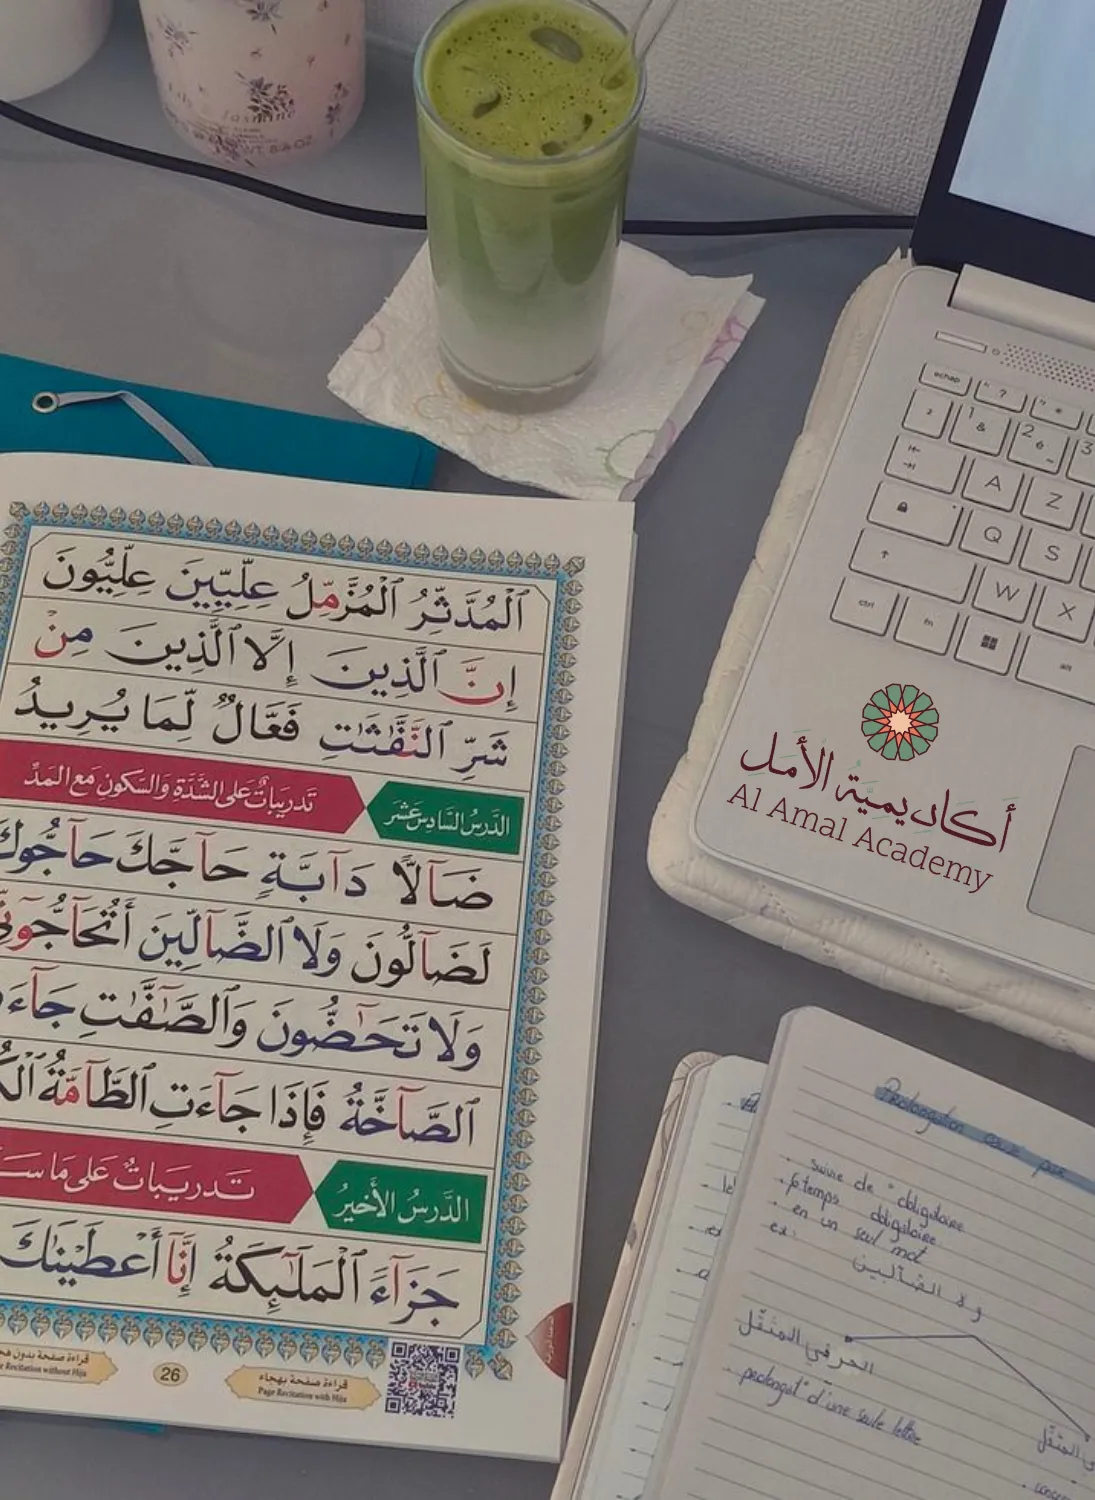 Jasmine
WT. 8.8 OZ
echap
ctrl
fn
alt
A
Z
Q
S
W
X
ٱلْمُدَّثِّرُ ٱلْمُزَّمِّلُ عِلِّيِّينَ عِلِّيُّونَ
إِنَّ ٱلَّذِينَ إِلَّا ٱلَّذِينَ مِنْ
شَرِّ ٱلنَّفَّٰثَٰتِ فَعَّالٌ لِّمَا يُرِيدُ
الدَّرْسُ السَّادِسَ عَشَرَ تَدْرِيبَاتٌ عَلَى الشَّدَّةِ وَالسُّكُونِ مَعَ الْمَدِّ
ضَآلًّا دَآبَّةٍ حَآجَّكَ حَآجُّوكَ
لَضَآلُّونَ وَلَا ٱلضَّآلِّينَ أَتُحَآجُّوٓنِّي
وَلَا تَحَٰٓضُّونَ وَٱلصَّٰٓفَّٰتِ جَآءَ
ٱلصَّآخَّةُ فَإِذَا جَآءَتِ ٱلطَّآمَّةُ
الدَّرْسُ الأَخِيرُ تَدْرِيبَاتٌ عَلَى مَا
جَزَآءَ ٱلْمَلَٰٓئِكَةُ إِنَّآ أَعْطَيْنَٰكَ
قراءة صفحة بهجاء
Page Recitation with Hija
26
قراءة صفحة بدون
Recitation without Hija
أكاديمية الأمل
Al Amal Academy
Prolongation
suivie de ° obligatoire
6 temps obligatoire
en un seul mot
ex:
و لا الضآلين
الحرفي المثقّل
prolongat° d'une seule lettre